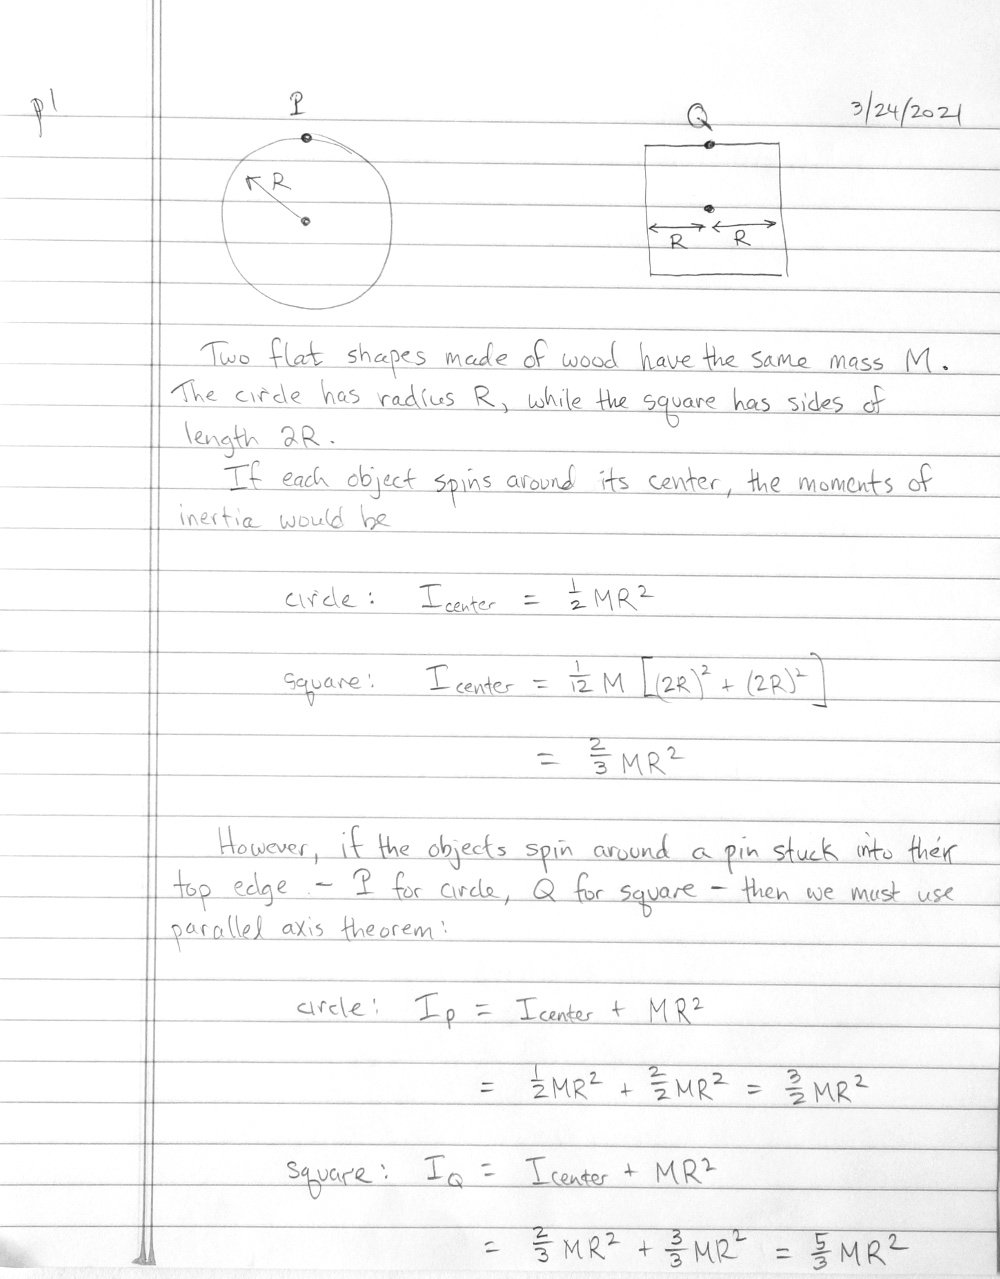 p1
P
Q
3/24/2021
R
R R
Two flat shapes made of wood have the same mass M.
The circle has radius R, while the square has sides of
length 2R.
If each object spins around its center, the moments of
inertia would be
circle: I center = 1/2 MR²
square: I center = 1/12 M [(2R)² + (2R)²]
= 2/3 MR²
However, if the objects spin around a pin stuck into their
top edge - P for circle, Q for square - then we must use
parallel axis theorem:
circle: I_P = I center + MR²
= 1/2 MR² + 2/2 MR² = 3/2 MR²
square: I_Q = I center + MR²
= 2/3 MR² + 3/3 MR² = 5/3 MR²